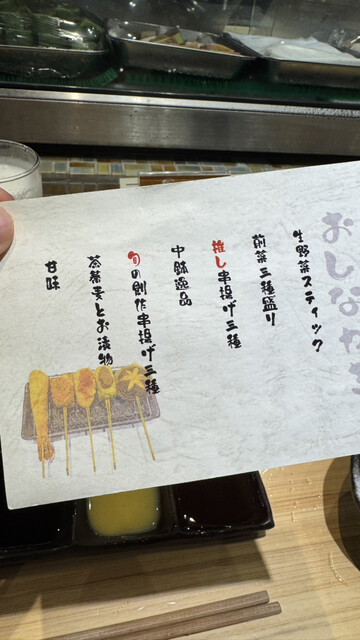 おしながき
生野菜スティック
前菜三種盛り
推し串揚げ三種
中鉢逸品
旬の創作串揚げ三種
茶蕎麦とお漬物
甘味